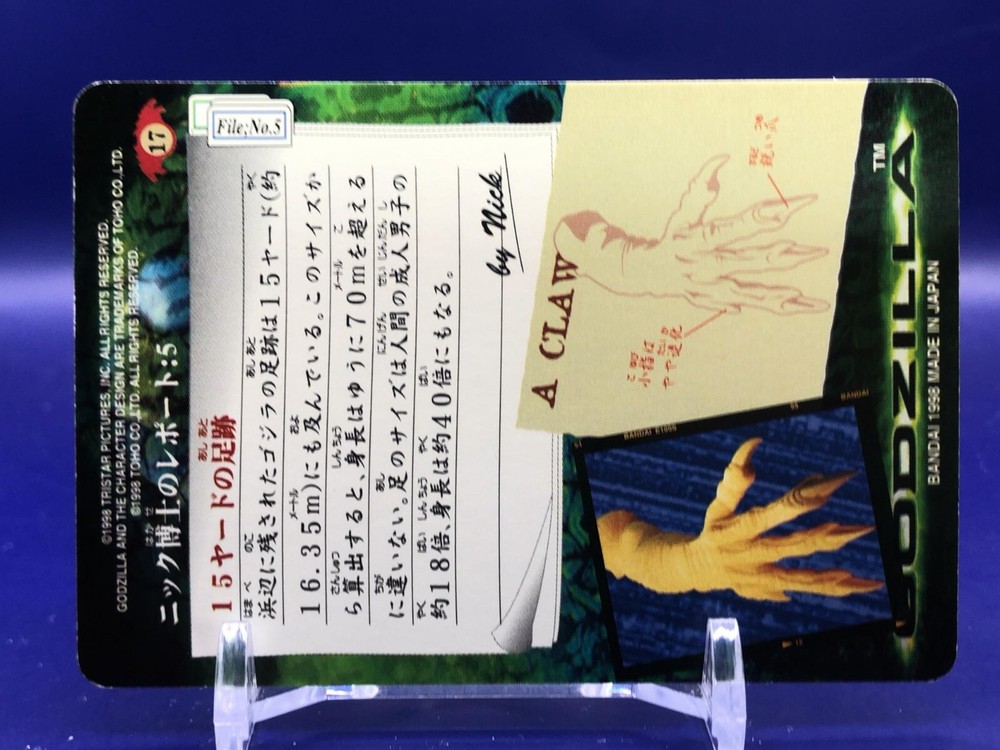 ©1998 TRISTAR PICTURES, INC. ALL RIGHTS RESERVED.
GODZILLA AND THE CHARACTER DESIGN ARE TRADEMARKS OF TOHO CO., LTD.
©1998 TOHO CO., LTD. ALL RIGHTS RESERVED.
17
ニック博士のレポート:5
File;No.5
15ヤードの足跡
浜辺に残されたゴジラの足跡は15ヤード(約
16.35m)にも及んでいる。このサイズか
ら算出すると、身長はゆうに70mを超える
に違いない。足のサイズは人間の成人男子の
約18倍、身長は約40倍にもなる。
by Nick
A CLAW
鋭い爪
小指は
やや退化
BANDAI
GODZILLA
TM
BANDAI 1998 MADE IN JAPAN